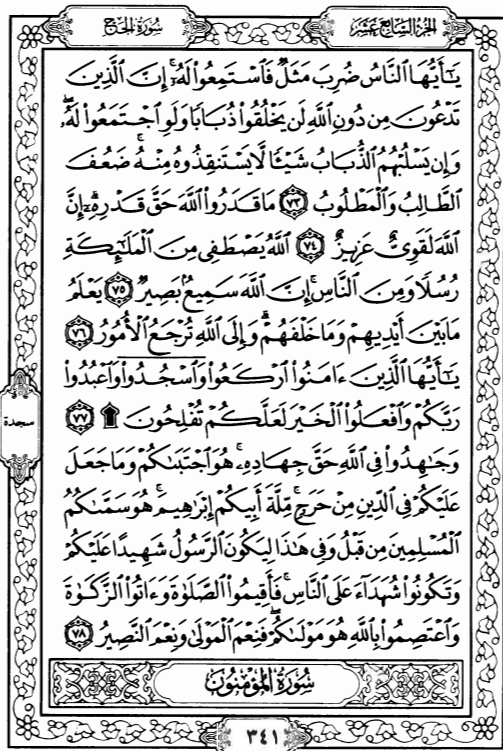 سُورَةُ الحَجِّ
الجُزْءُ السَّابِعَ عَشَرَ
يَٰٓأَيُّهَا ٱلنَّاسُ ضُرِبَ مَثَلٌ فَٱسْتَمِعُوا۟ لَهُۥٓ ۚ إِنَّ ٱلَّذِينَ
تَدْعُونَ مِن دُونِ ٱللَّهِ لَن يَخْلُقُوا۟ ذُبَابًا وَلَوِ ٱجْتَمَعُوا۟ لَهُۥ ۖ
وَإِن يَسْلُبْهُمُ ٱلذُّبَابُ شَيْـًٔا لَّا يَسْتَنقِذُوهُ مِنْهُ ۚ ضَعُفَ
ٱلطَّالِبُ وَٱلْمَطْلُوبُ ٧٣ مَا قَدَرُوا۟ ٱللَّهَ حَقَّ قَدْرِهِۦٓ ۗ إِنَّ
ٱللَّهَ لَقَوِىٌّ عَزِيزٌ ٧٤ ٱللَّهُ يَصْطَفِى مِنَ ٱلْمَلَٰٓئِكَةِ
رُسُلًا وَمِنَ ٱلنَّاسِ ۚ إِنَّ ٱللَّهَ سَمِيعٌۢ بَصِيرٌ ٧٥ يَعْلَمُ
مَا بَيْنَ أَيْدِيهِمْ وَمَا خَلْفَهُمْ ۗ وَإِلَى ٱللَّهِ تُرْجَعُ ٱلْأُمُورُ ٧٦
يَٰٓأَيُّهَا ٱلَّذِينَ ءَامَنُوا۟ ٱرْكَعُوا۟ وَٱسْجُدُوا۟ وَٱعْبُدُوا۟
رَبَّكُمْ وَٱفْعَلُوا۟ ٱلْخَيْرَ لَعَلَّكُمْ تُفْلِحُونَ ۩ ٧٧
سجدة
وَجَٰهِدُوا۟ فِى ٱللَّهِ حَقَّ جِهَادِهِۦ ۚ هُوَ ٱجْتَبَىٰكُمْ وَمَا جَعَلَ
عَلَيْكُمْ فِى ٱلدِّينِ مِنْ حَرَجٍ ۚ مِّلَّةَ أَبِيكُمْ إِبْرَٰهِيمَ ۚ هُوَ سَمَّىٰكُمُ
ٱلْمُسْلِمِينَ مِن قَبْلُ وَفِى هَٰذَا لِيَكُونَ ٱلرَّسُولُ شَهِيدًا عَلَيْكُمْ
وَتَكُونُوا۟ شُهَدَآءَ عَلَى ٱلنَّاسِ ۚ فَأَقِيمُوا۟ ٱلصَّلَوٰةَ وَءَاتُوا۟ ٱلزَّكَوٰةَ
وَٱعْتَصِمُوا۟ بِٱللَّهِ هُوَ مَوْلَىٰكُمْ ۖ فَنِعْمَ ٱلْمَوْلَىٰ وَنِعْمَ ٱلنَّصِيرُ ٧٨
سُورَةُ المُؤْمِنُونَ
٣٤١